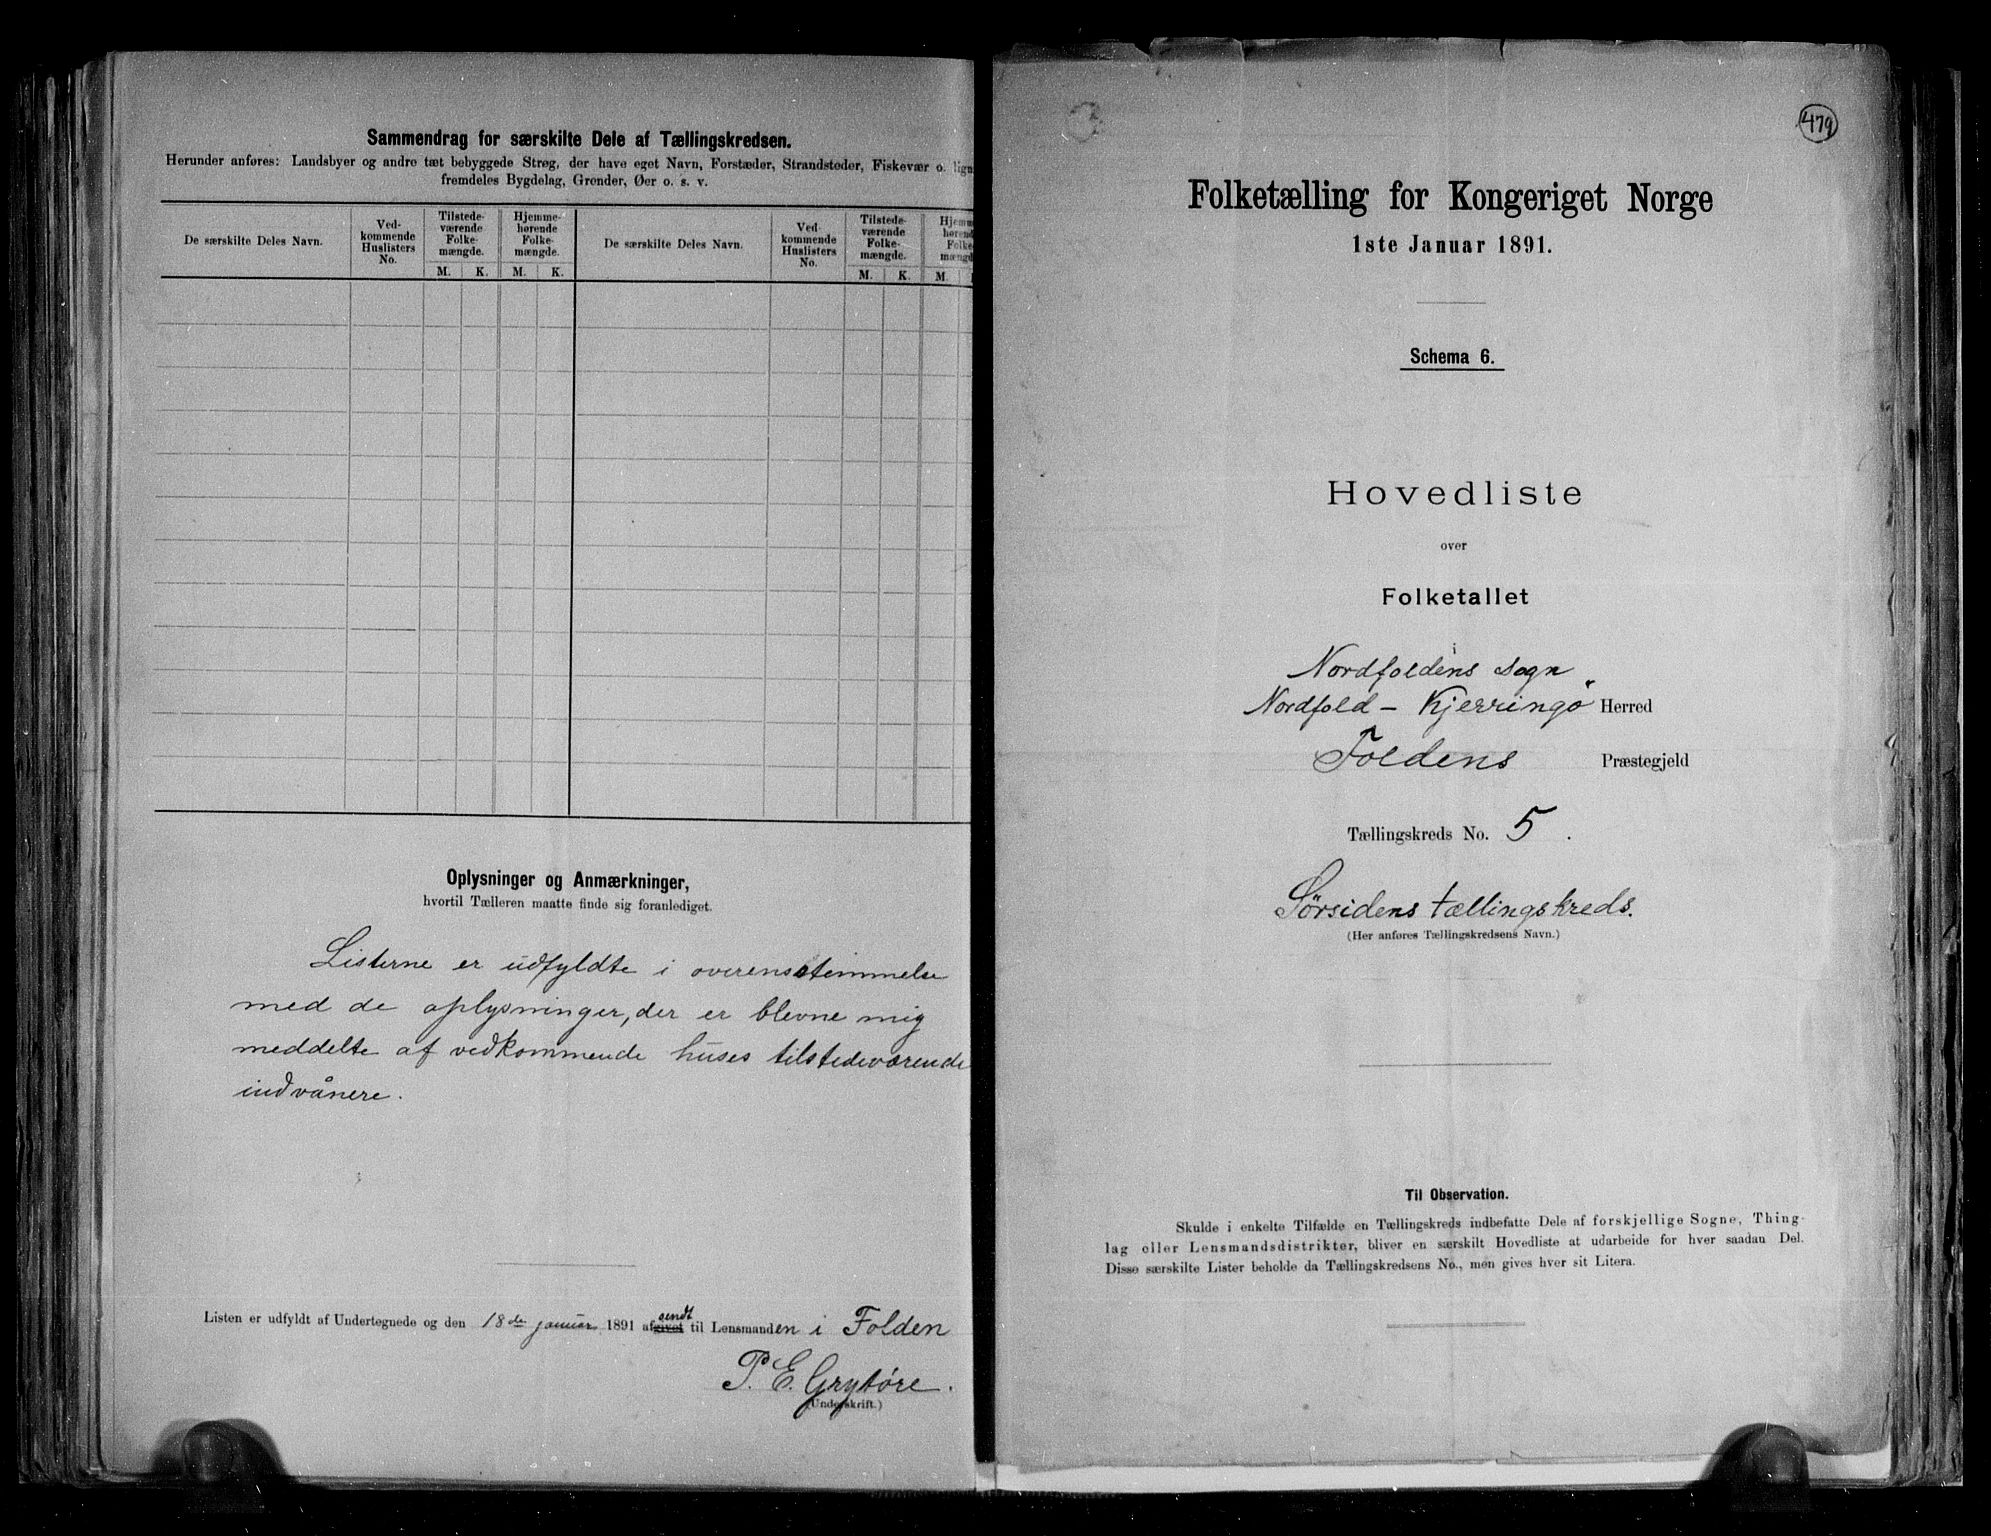 Sammendrag for særskilte Dele af Tællingskredsen.
Herunder anføres: Landsbyer og andre tæt bebyggede Strøg, der have eget Navn, Forstæder, Strandsteder, Fiskevær o. lign.
fremdeles Bygdelag, Grender, Øer o. s. v.
De særskilte Deles Navn.
Ved-
kommende
Huslisters
No.
Tilstede-
værende
Folke-
mængde.
Hjemme-
hørende
Folke-
mængde.
De særskilte Deles Navn.
Ved-
kommende
Huslisters
No.
Tilstede-
værende
Folke-
mængde.
Hjemm
hørend
Folke
mængd
M. K. M. K. M. K. M.
Oplysninger og Anmærkninger,
hvortil Tælleren maatte finde sig foranlediget.
Listerne er udfyldte i overensstemmelse
med de oplysninger, der er blevne mig
meddelte af vedkommende huses tilstedeværende
indvånere.
Listen er udfyldt af Undertegnede og den 18de januar 1891 afgivet sendt til Lensmanden i Folden
P. E. Grytøre.
(Underskrift.)
479
Folketælling for Kongeriget Norge
1ste Januar 1891.
Schema 6.
Hovedliste
over
Folketallet
i
Nordfoldens sogn
Nordfold - Kjerringø Herred
Foldens Præstegjeld
Tællingskreds No. 5.
Sørsidens tællingskreds.
(Her anføres Tællingskredsens Navn.)
Til Observation.
Skulde i enkelte Tilfælde en Tællingskreds indbefatte Dele af forskjellige Sogne, Thing-
lag eller Lensmandsdistrikter, bliver en særskilt Hovedliste at udarbeide for hver saadan Del.
Disse særskilte Lister beholde da Tællingskredsens No., men gives hver sit Litera.